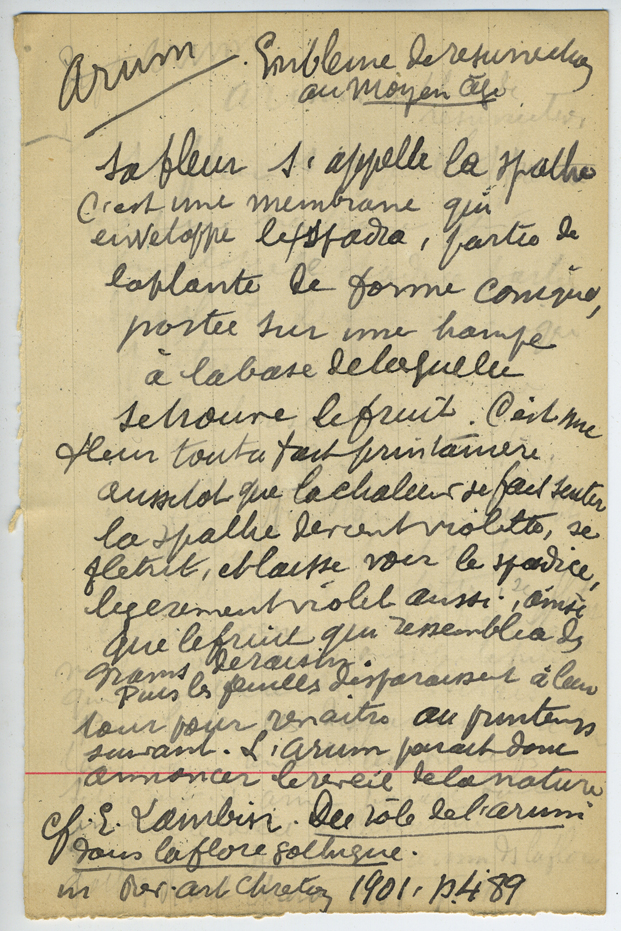 Arum. Embleme de resurrection
au moyen age
Sa fleur s'appelle la spathe
C'est une membrane qui
enveloppe le spadice, partie de
la plante de forme conique,
portée sur une hampe
à la base de laquelle
se trouve le fruit. C'est une
fleur tout a fait printaniere
aussitot que la chaleur se fait sentir
la spathe devient violette, se
fletrit, et laisse voir le spadice,
legerement violet aussi, ainsi
que le fruit qui ressemble a des
grains de raisin
Puis les feuilles disparaissent à leur
tour pour renaitre au printemps
suivant. L'arum parait donc
annoncer le reveil de la nature
cf. E. Lambin. Du rôle de l'arum
dans la flore gothique.
in Rev. art Chretien 1901. p. 489